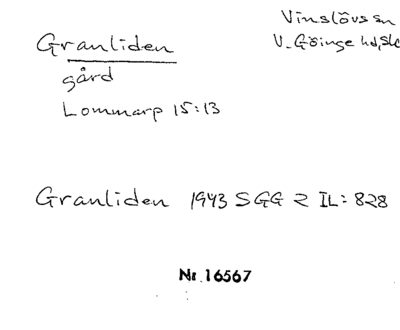 Granliden
Vinslövs sn
V. Göinge hd, Sk
gård
Lommarp 15:13
Granliden 1943 SGG 2 IL: 828
Nr. 16567